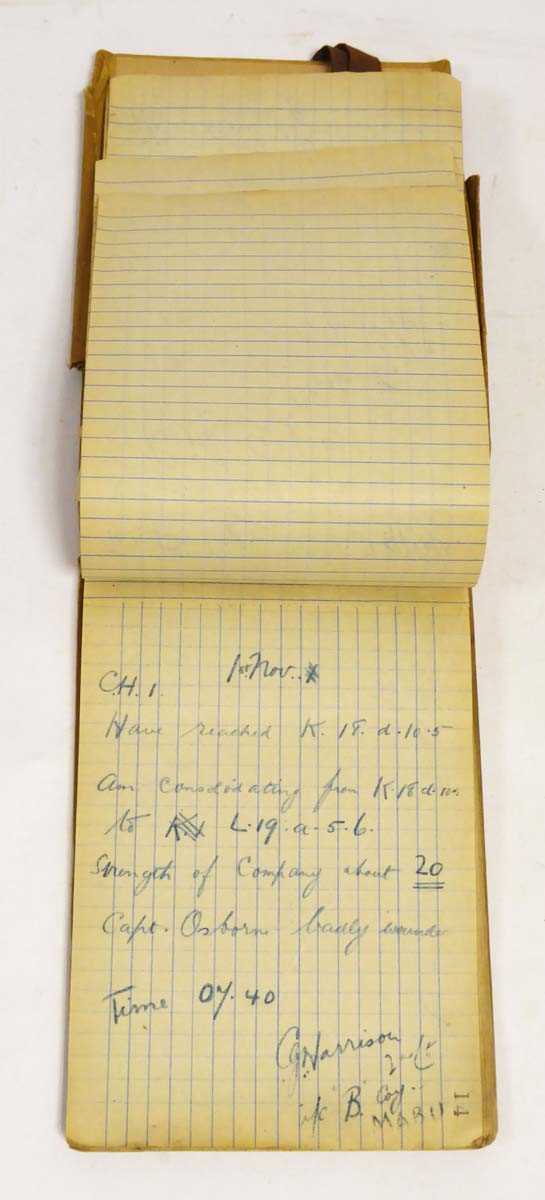 1st Nov.
C.H. 1.
Have reached K. 18. d. 10. 5
Am consolidating from K. 18 d. 10.
to L. 19. a. 5. 6.
Strength of Company about 20
Capt. Osborne badly wounde
Time 07.40
Harrison
2nd Lt
i/c B. Coy.
14